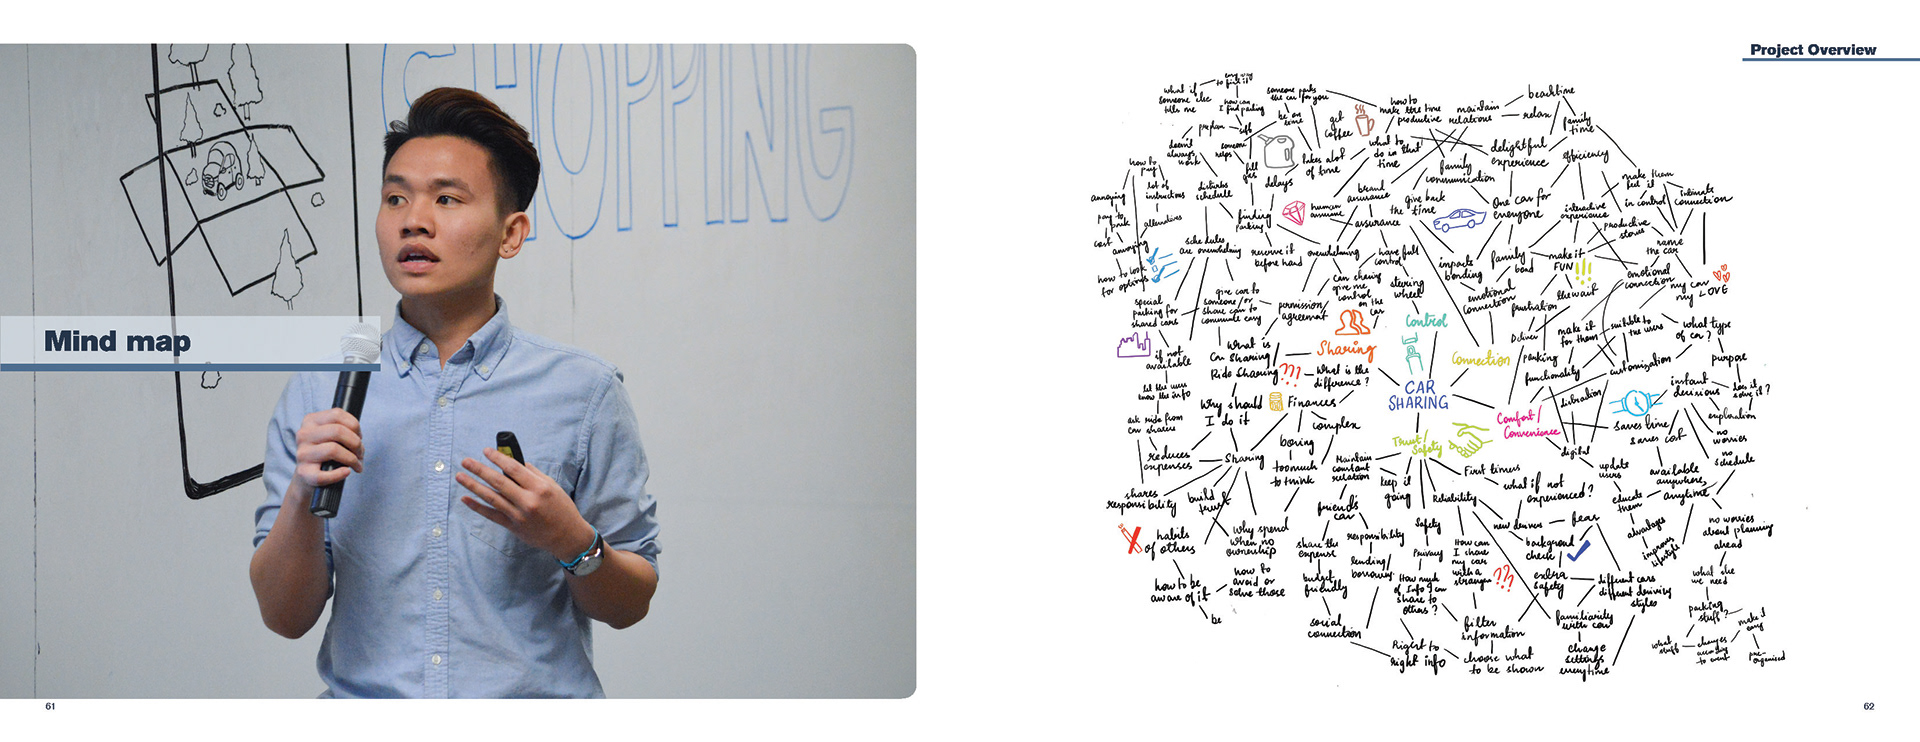 SHOPPING
Mind map
61
Project Overview
what if
someone else
tells me
to find it
how can
I find parking
someone parks
the car for you
be on
time
get
coffee
how to
make the time
productive
maintain
relations
beach time
relax
family
time
preplan
doesn't
always
work
someone
helps
fill
gas
takes alot
of time
delays
what to
do in that
time
family
communication
delightful
experience
efficiency
how to
pay
lot of
instructions
annoying
pay to
park
cost
annoying
alternatives
disturbs
schedule
finding
parking
human
assurance
brand
assurance
assurance
give back
the time
One car for
everyone
interactive
experience
make them
feel it
in control
intimate
connection
productive
stores
name
the car
how to look
for options
schedules
are overwhelming
reserve it
before hand
overwhelming
have full
control
impacts
bonding
family
bond
make it
FUN
emotional
connection
my car
my LOVE
special
parking for
shared cars
give car to
someone/or
share car to
commute easy
permission/
agreement
can sharing
give me
control
on the
car
steering
wheel
emotional
connection
frustration
the wait
if not
available
let the user
know the info
ask ride from
car sharers
What is
Car Sharing/
Ride Sharing
???
What is the
difference?
Sharing
Control
Connection
CAR
SHARING
Deliver
parking
functionality
make it
for them
suitable to
the users
what type
of car?
customization
purpose
does it
solve it?
instant
decisions
exploration
Why should
I do it
Finances
complex
boring
too much
to think
Trust/
Safety
Comfort/
Convenience
digital
saves time
saves cost
no
worries
no
schedule
reduces
expenses
Sharing
shares
responsibility
build
trust
Maintain
constant
relation
keep it
going
First timers
Reliability
what if not
experienced?
update
users
educate
them
available
anywhere,
anytime
advantages
improves
lifestyle
no worries
about planning
ahead
habits
of others
why spend
when no
ownership
friends
car
share the
expense
budget
friendly
responsibility
lending/
borrowing
Safety
Privacy
How much
of Info I can
share to
others?
How can
I share
my car
with a
stranger
??
new drivers
fear
background
check
extra
safety
different cars
different driving
styles
what else
we need
how to be
aware of it
how to
avoid or
solve those
be
social
connection
filter
information
familiarity
with car
Right to
right info
choose what
to be shown
change
settings
everytime
parking
stuff?
make it
easy
what
stuff
changes
according
to event
pre-
organised
62